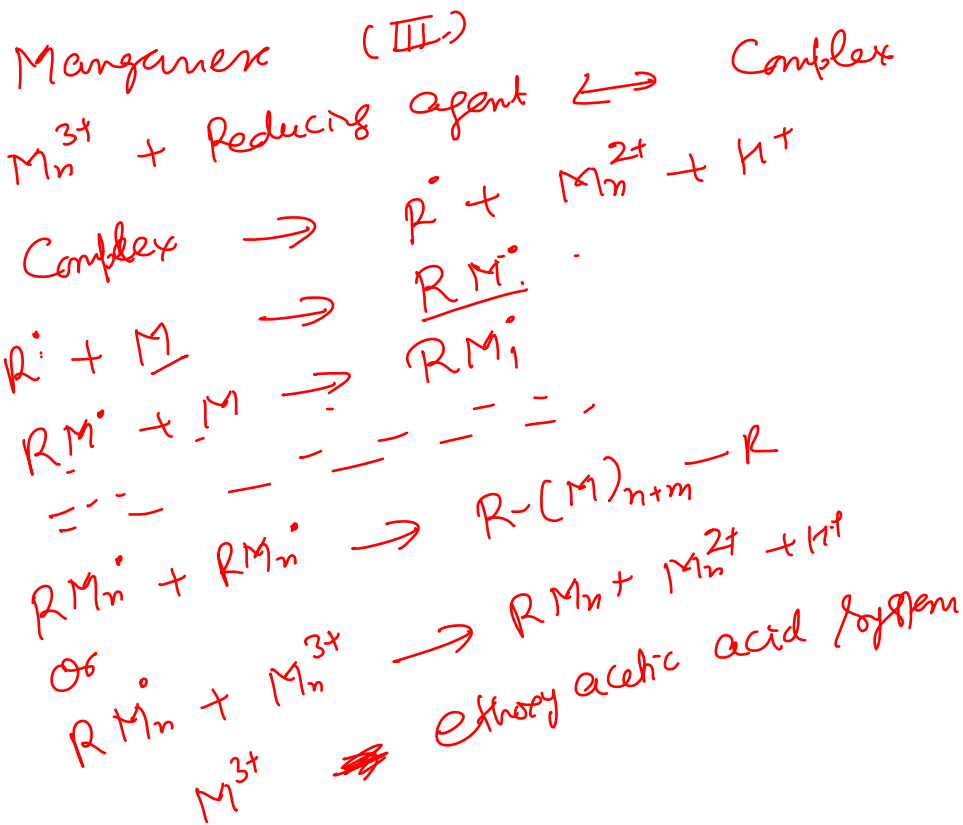 Manganese (III)
Mn³⁺ + Reducing agent ⟷ Complex
Complex → R• + Mn²⁺ + H⁺
R• + M → RM•
RM• + M → RM₁•
RMn• + RMn• → R-(M)n+m-R
or
RMn• + Mn³⁺ → RMn + Mn²⁺ + H⁺
M³⁺ ethoxy acetic acid system